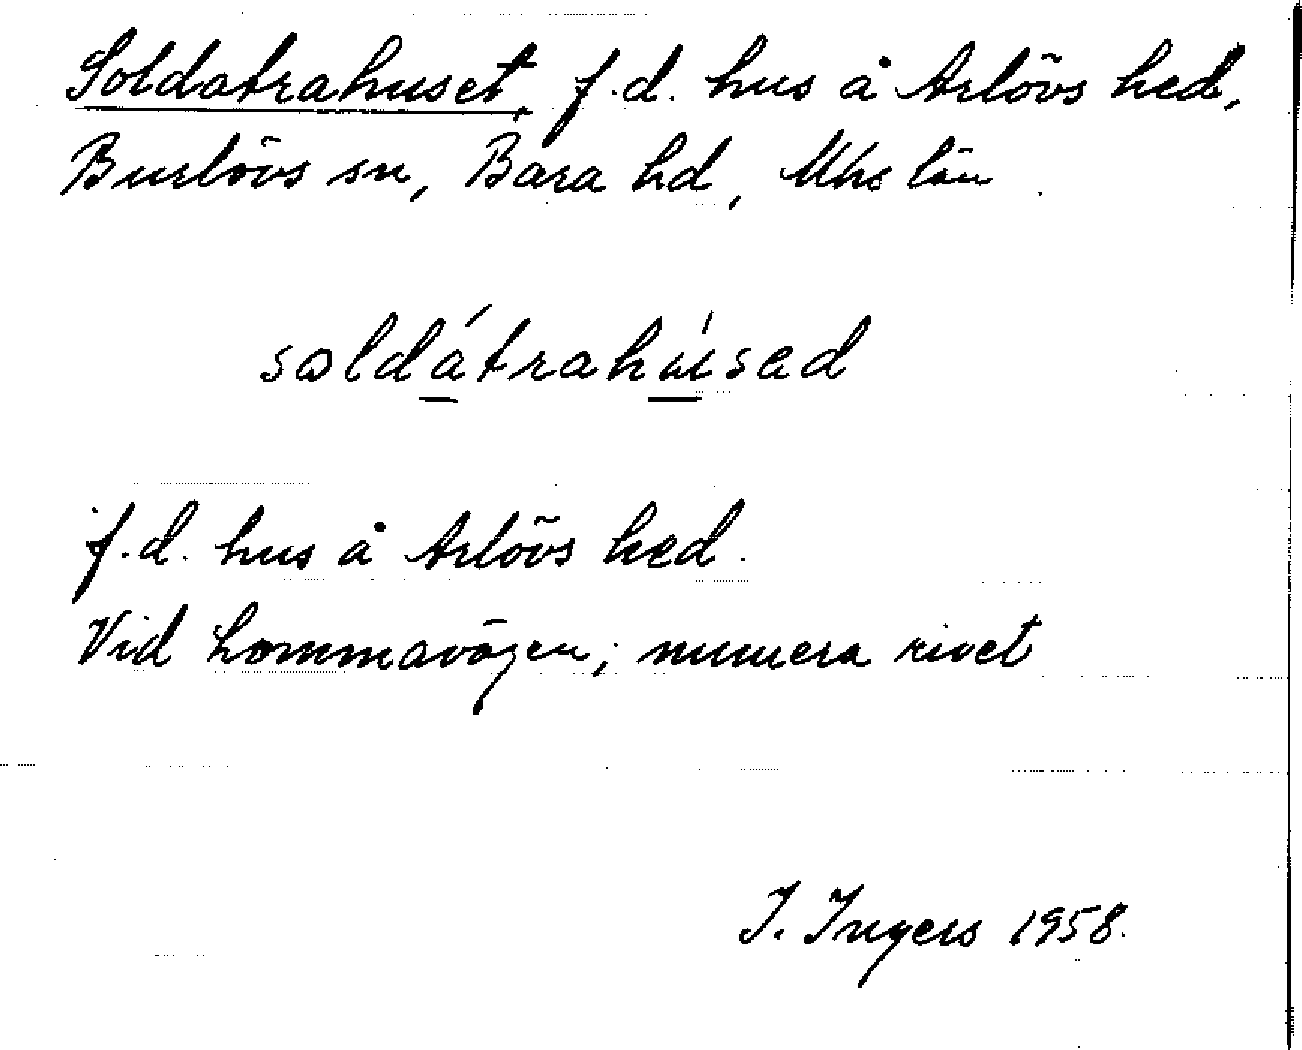 Soldatrahuset, f.d. hus å Arlövs hed,
Burlövs sn, Bara hd, Mhs län.
soldátrahúsed
f.d. hus å Arlövs hed.
Vid Lommavägen; numera rivet
I. Ingers 1958.